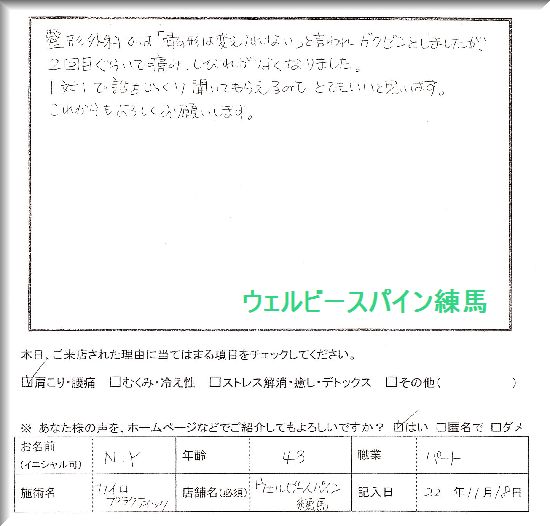 整形外科では「骨の形は変えられない」と言われガクゼンとしましたが
2回目ぐらいで頭の、しびれがなくなりました。
1対1で話をじっくり聞いてもらえるので、とてもいいと思います。
これからもよろしくお願いします。
ウェルビースパイン練馬
本日、ご来店された理由に当てはまる項目をチェックしてください。
☑肩こり・腰痛 □むくみ・冷え性 □ストレス解消・癒し・デトックス □その他( )
※ あなた様の声を、ホームページなどでご紹介してもよろしいですか? ☑はい □匿名で □ダメ
お名前 (イニシャル可) N.Y 年齢 43 職業 パート
施術名 カイロプラクティック 店舗名(必須) ウェルビースパイン練馬 記入日 22年11月18日